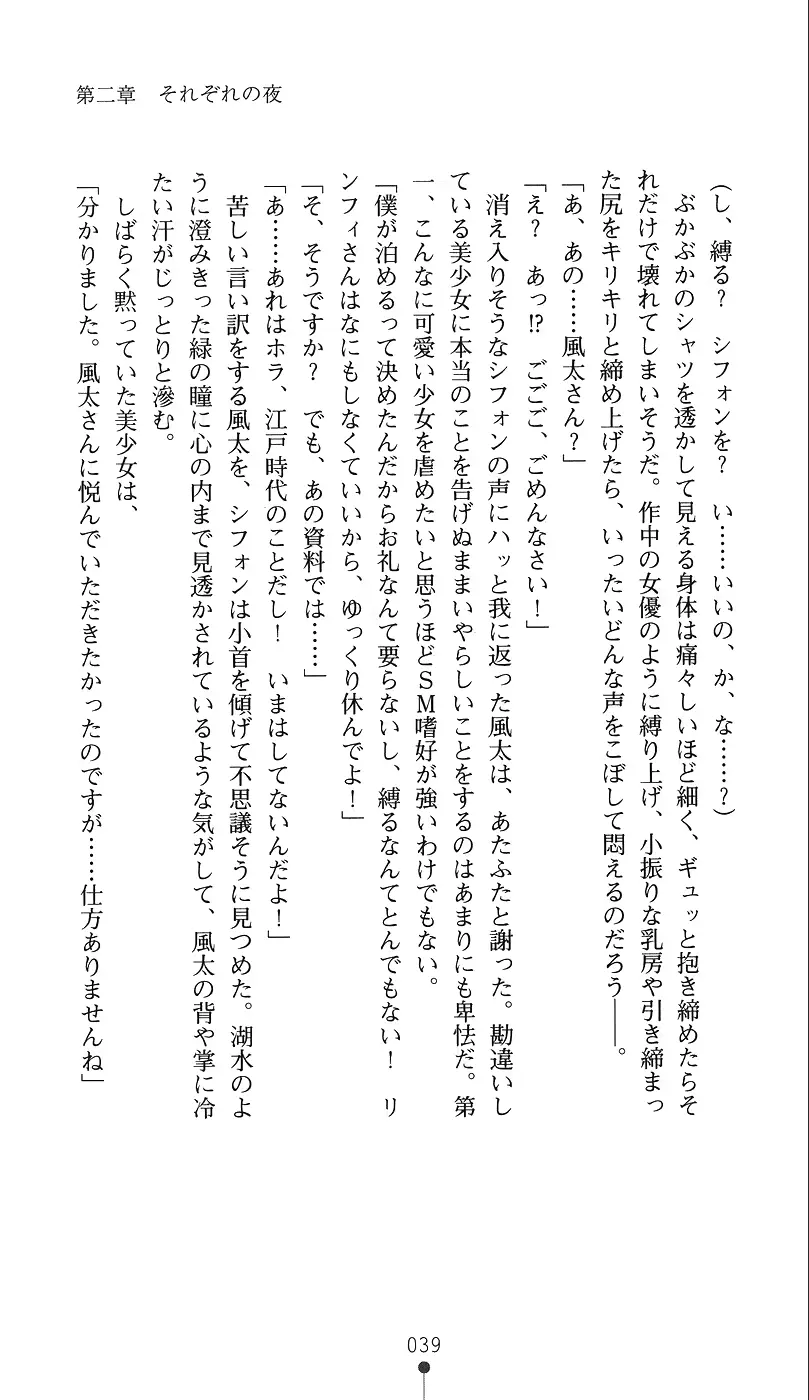 第二章　それぞれの夜
(し、縛る？　シフォンを？　い……いいの、か、な……？)
　ぶかぶかのシャツを透かして見える身体は痛々しいほど細く、ギュッと抱き締めたらそ
れだけで壊れてしまいそうだ。作中の女優のように縛り上げ、小振りな乳房や引き締まっ
た尻をキリキリと締め上げたら、いったいどんな声をこぼして悶えるのだろう――。
「あ、あの……風太さん？」
「え？　あっ!?　ごごご、ごめんなさい！」
　消え入りそうなシフォンの声にハッと我に返った風太は、あたふたと謝った。勘違いし
ている美少女に本当のことを告げぬままいやらしいことをするのはあまりにも卑怯だ。第
一、こんなに可愛い少女を虐めたいと思うほどＳＭ嗜好が強いわけでもない。
「僕が泊めるって決めたんだからお礼なんて要らないし、縛るなんてとんでもない！　リ
ンフィさんはなにもしなくていいから、ゆっくり休んでよ！」
「そ、そうですか？　でも、あの資料では……」
「あ……あれはホラ、江戸時代のことだし！　いまはしてないんだよ！」
　苦しい言い訳をする風太を、シフォンは小首を傾げて不思議そうに見つめた。湖水のよ
うに澄みきった緑の瞳に心の内まで見透かされているような気がして、風太の背や掌に冷
たい汗がじっとりと滲む。
　しばらく黙っていた美少女は、
「分かりました。風太さんに悦んでいただきたかったのですが……仕方ありませんね」
039